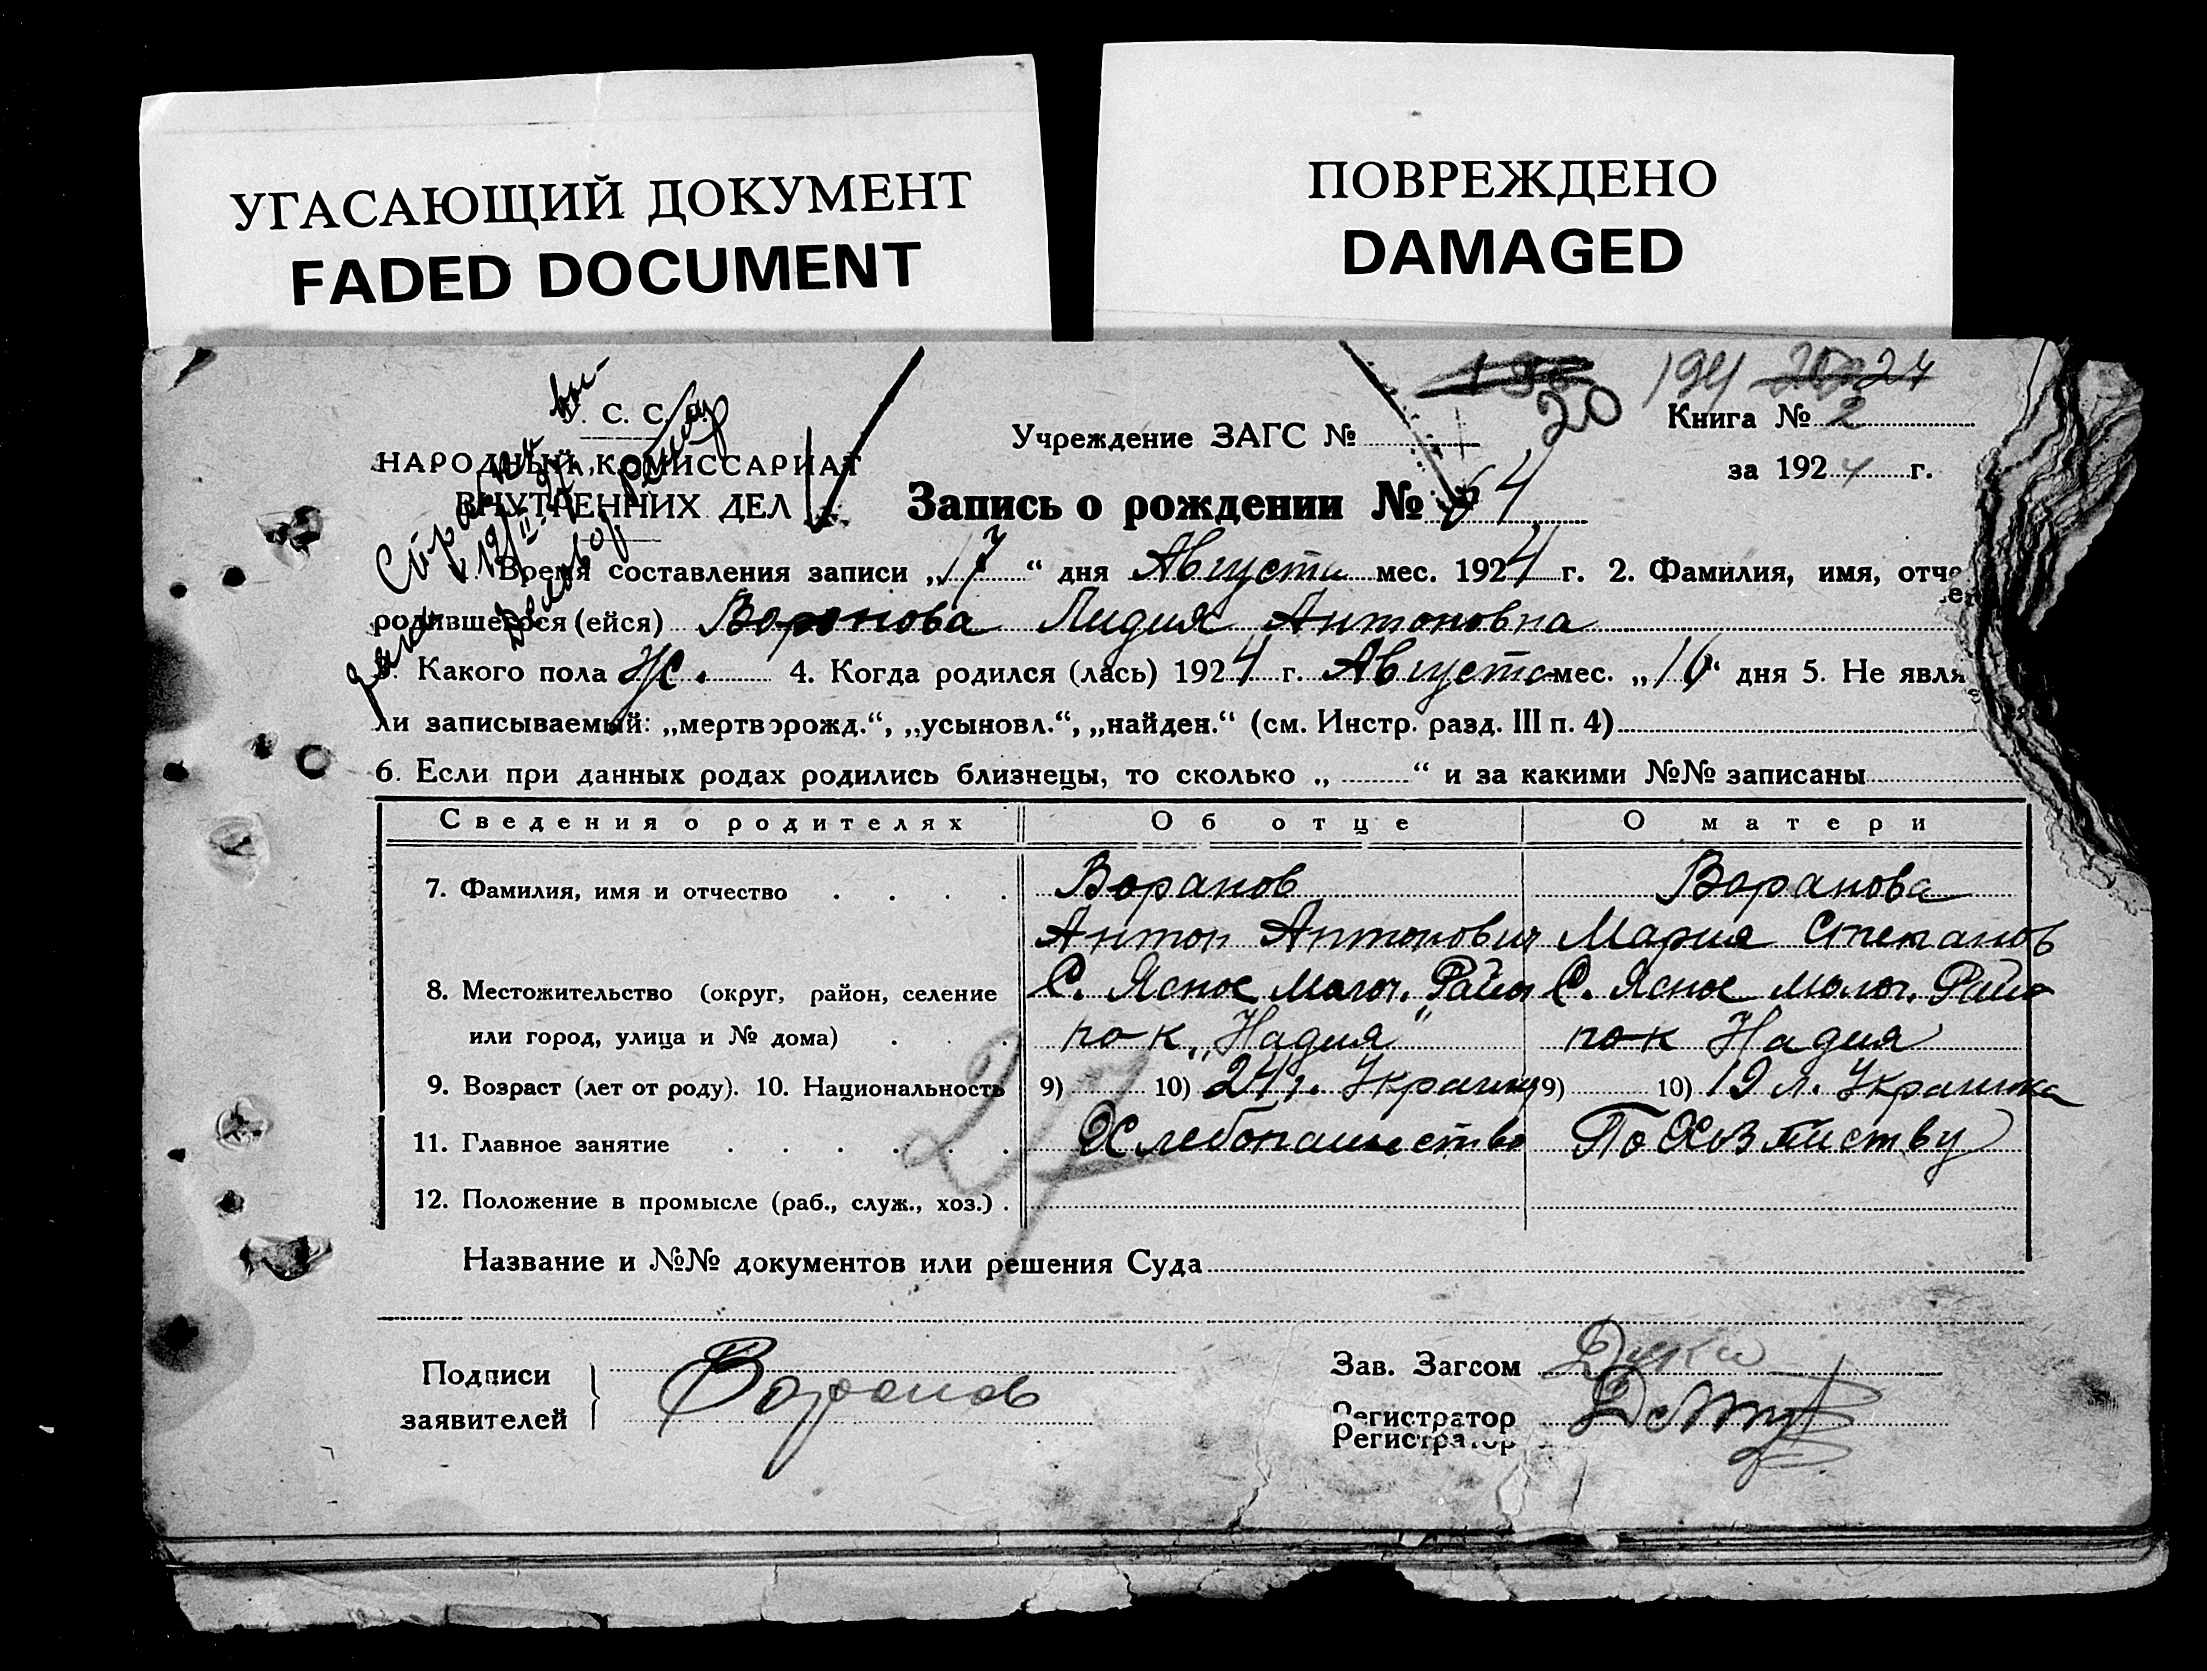 УГАСАЮЩИЙ ДОКУМЕНТ
FADED DOCUMENT
ПОВРЕЖДЕНО
DAMAGED
194 27
20
С. С.
НАРОДНЫЙ КОМИССАРИАТ
ВНУТРЕННИХ ДЕЛ
Учреждение ЗАГС №
Книга № 2
за 1924 г.
Запись о рождении № 64
Время составления записи „17“ дня Августа мес. 1924 г. 2. Фамилия, имя, отче
родившегося (ейся) Воронова Лидия Антоновна
3. Какого пола Ж. 4. Когда родился (лась) 1924 г. Августа мес. „16“ дня 5. Не явля
ли записываемый: „мертворожд.“, „усыновл.“, „найден.“ (см. Инстр. разд. III п. 4)
6. Если при данных родах родились близнецы, то сколько „ “ и за какими №№ записаны
Сведения о родителях Об отце О матери
7. Фамилия, имя и отчество Воранов Воранова
Антон Антонович Мария Степанов
8. Местожительство (округ, район, селение С. Ясное Молоч. Район С. Ясное Молоч. Райо
или город, улица и № дома) пок „Надия“ пок Надия
9. Возраст (лет от роду). 10. Национальность 9) 10) 24 г. Украинц 9) 10) 19 л. Украинка
11. Главное занятие Хлебопашество По Хозяйству
12. Положение в промысле (раб., служ., хоз.)
27
Название и №№ документов или решения Суда
Подписи
заявителей
Воронов
Зав. Загсом
Регистратор
Регистратор